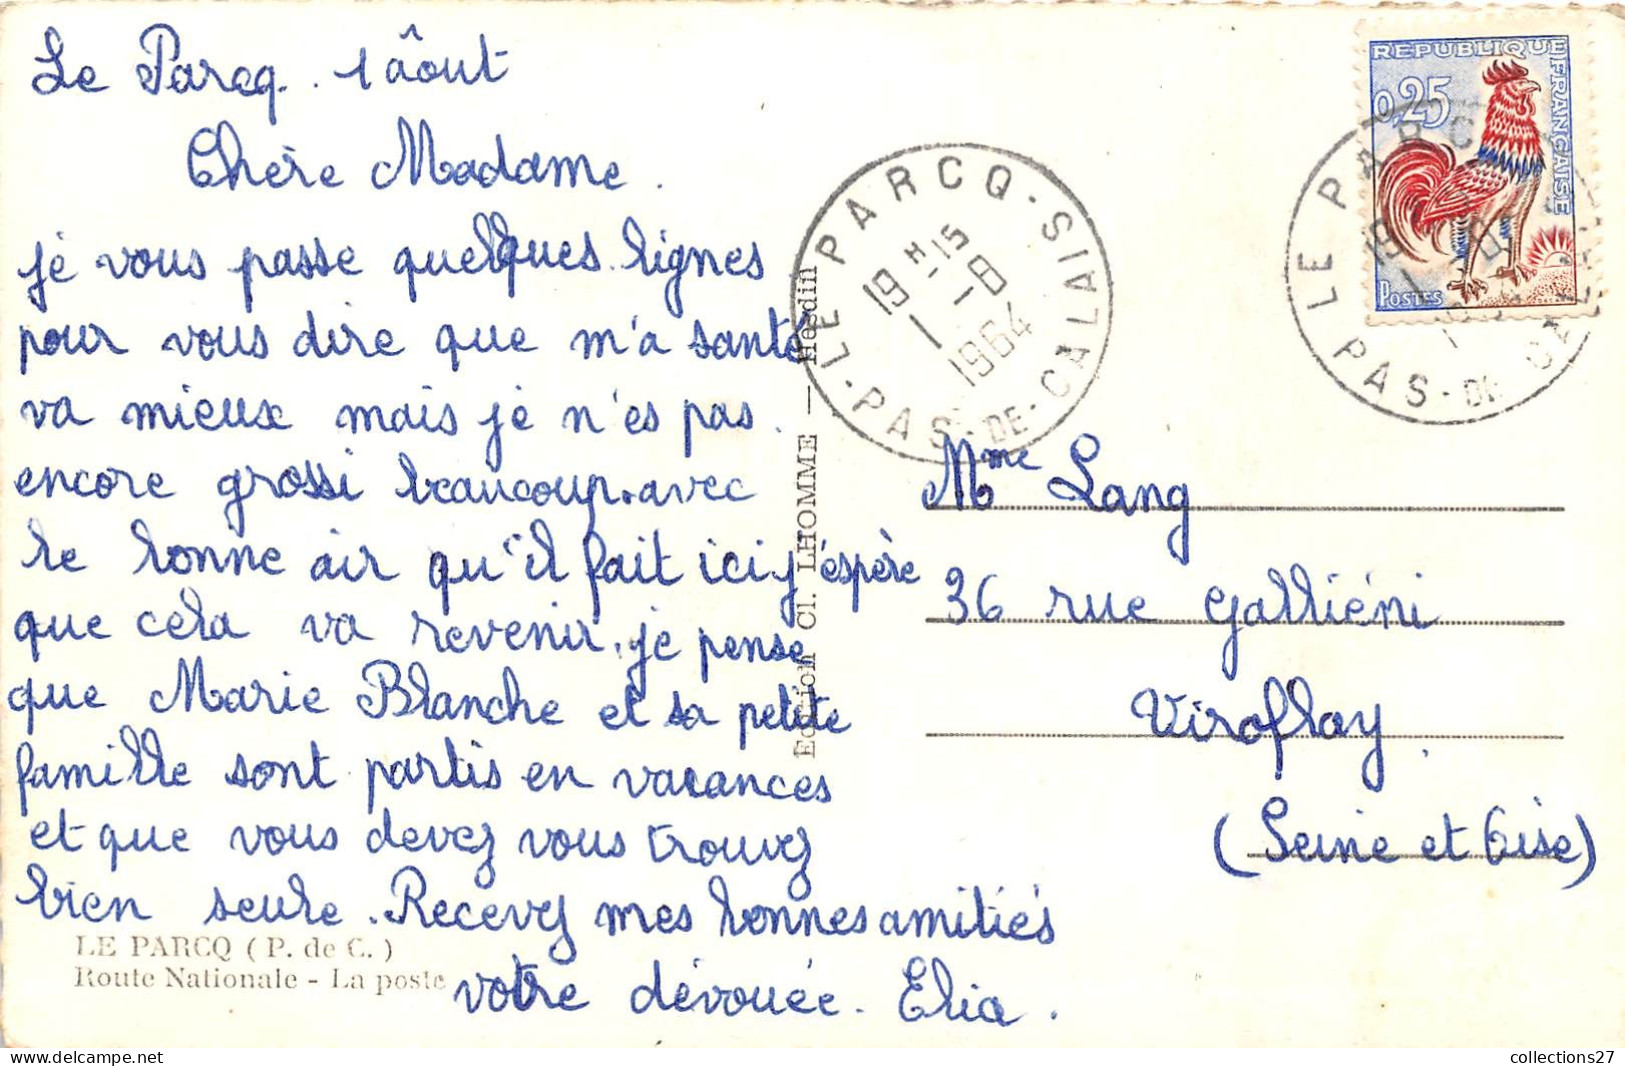 Le Parcq. 1 âout
Chère Madame.
je vous passe quelques lignes
pour vous dire que m'a santé
va mieux mais je n'es pas.
encore grossi beaucoup. avec
le bonne air qu'il fait ici j'éspère
que cela va revenir. je pense
que Marie Blanche et sa petite
famille sont partis en vacances
et que vous devez vous trouvez
bien seule. Recevez mes bonnes amitiés
votre dévouée. Elia.
LE PARCQ (P. de C.)
Route Nationale - La poste
Edition Cl. LHOMME — Hesdin
LE PARCQ - SIALAIS
LE - PAS - DE - CALAIS
19 H 15
1 - 8
1964
REPUBLIQUE FRANÇAISE
0,25
POSTES
LE PARC
LE PAS - DE CA
Mme Lang
36 rue Galliéni
Viroflay.
(Seine et Oise)
collections27